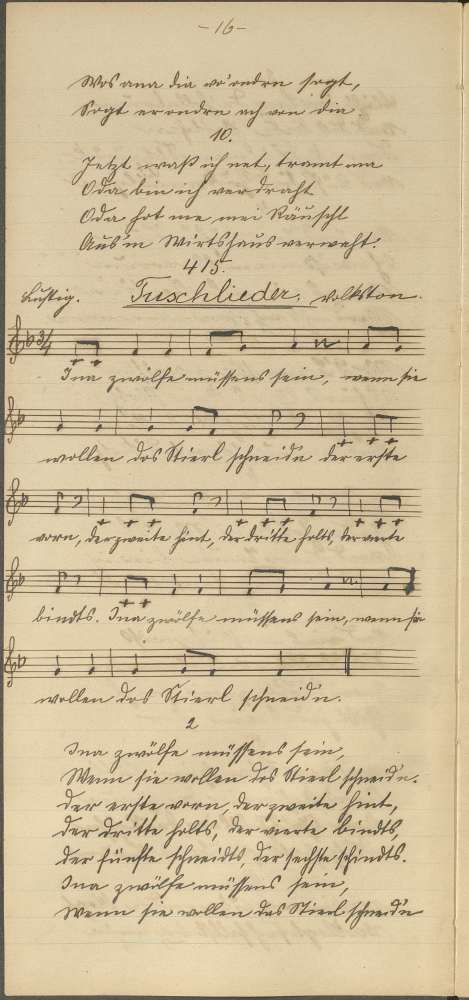 -16-
Wos ana dia vo ondre sogt,
Sogt er ondre ach von dia.
10.
Jetzt waß ich net, tramt ma
Oda bin ich verdraht
Oda hot me mei Räuschl
Aus'm Wirtshaus verweht.
415.
Lustig. Tuschlieder. Volkston.
3/4
Ina zwölfe müssens sein, wenn sie
wollen das Stierl schneid'n der erste
vorn, der zweite hint, der dritte holts, der vierte
bindts. Ina zwölfe müssens sein, wenn sie
wollen das Stierl schneid'n.
2
Ina zwölfe müssens sein,
Wenn sie wollen das Stierl schneid'n.
Der erste vorn, der zweite hint,
Der dritte holts, der vierte bindts,
Der fünfte schneidts, der sechste schindts.
Ina zwölfe müssens sein,
Wenn sie wollen das Stierl schneid'n